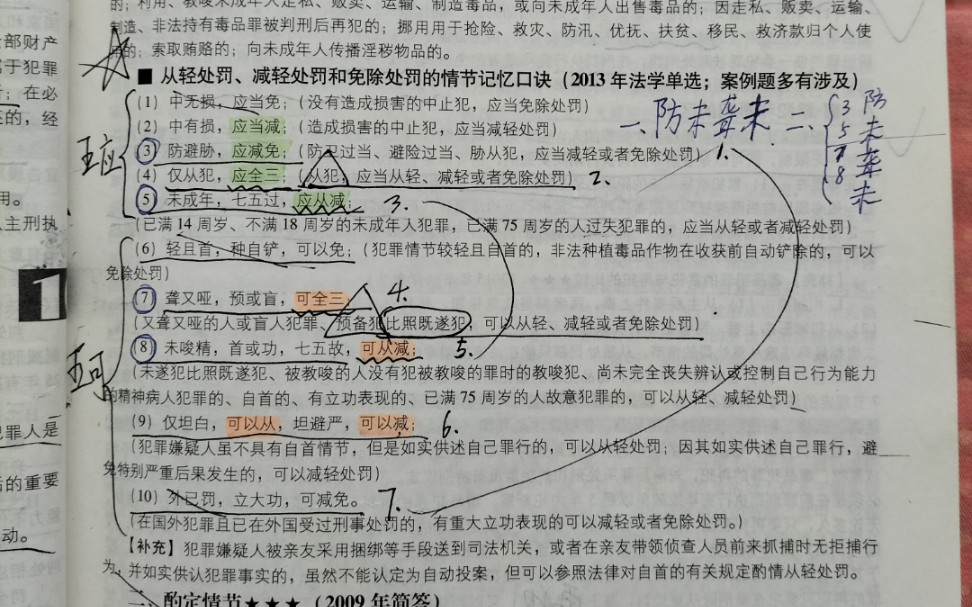 的；利用、教唆未成年人走私、贩卖、运输、制造毒品，或向未成年人出售毒品的；因走私、贩卖、运输、
制造、非法持有毒品罪被判刑后再犯的；挪用用于抢险、救灾、防汛、优抚、扶贫、移民、救济款归个人使
用的；索取贿赂的；向未成年人传播淫秽物品的。
■ 从轻处罚、减轻处罚和免除处罚的情节记忆口诀（2013 年法学单选；案例题多有涉及）
（1）中无损，应当免；（没有造成损害的中止犯，应当免除处罚）
（2）中有损，应当减；（造成损害的中止犯，应当减轻处罚）
（3）防避胁，应减免；（防卫过当、避险过当、胁从犯，应当减轻或者免除处罚） 1.
（4）仅从犯，应全三；（从犯，应当从轻、减轻或者免除处罚） 2.
（5）未成年，七五过，应从减； 3.
（已满 14 周岁、不满 18 周岁的未成年人犯罪，已满 75 周岁的人过失犯罪的，应当从轻或者减轻处罚）
（6）轻且首，种自铲，可以免；（犯罪情节较轻且自首的，非法种植毒品作物在收获前自动铲除的，可以
免除处罚）
（7）聋又哑，预或盲，可全三； 4.
（又聋又哑的人或盲人犯罪、预备犯比照既遂犯，可以从轻、减轻或者免除处罚）
（8）未唆精，首或功，七五故，可从减； 5.
（未遂犯比照既遂犯、被教唆的人没有犯被教唆的罪时的教唆犯、尚未完全丧失辨认或控制自己行为能力
的精神病人犯罪的、自首的、有立功表现的、已满 75 周岁的人故意犯罪的，可以从轻、减轻处罚）
（9）仅坦白，可以从，坦避严，可以减； 6.
（犯罪嫌疑人虽不具有自首情节，但是如实供述自己罪行的，可以从轻处罚；因其如实供述自己罪行，避
免特别严重后果发生的，可以减轻处罚）
（10）外已罚，立大功，可减免。 7.
（在国外犯罪且已在外国受过刑事处罚的，有重大立功表现的可以减轻或者免除处罚。）
【补充】犯罪嫌疑人被亲友采用捆绑等手段送到司法机关，或者在亲友带领侦查人员前来抓捕时无拒捕行
为，并如实供认犯罪事实的，虽然不能认定为自动投案，但可以参照法律对自首的有关规定酌情从轻处罚。
二、酌定情节★★★（2009 年简答）
一、防未聋未
二、
3 防
5 未
7 聋
8 未
五应
五可
部财产
属于犯罪
；在必
的，经
用。
主刑执
1
犯罪人是
的重要
动。